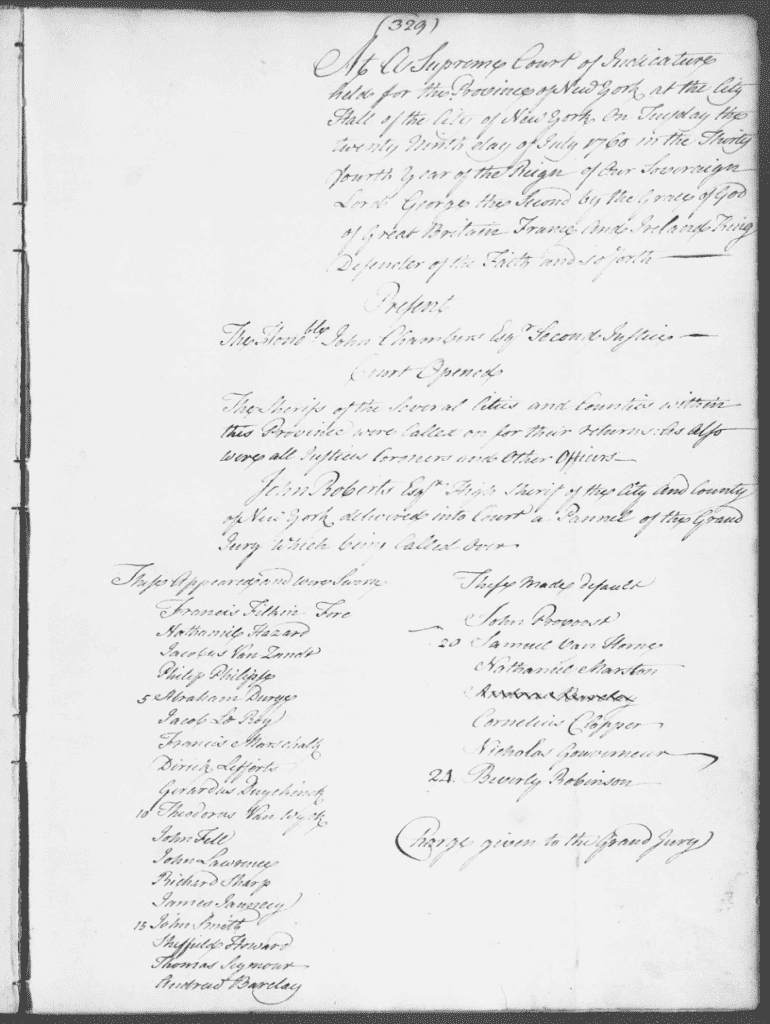 (329)
At A Supreme Court of Judicature
held for the Province of New York at the City
Hall of the City of New York On Tuesday the
twenty Ninth day of July 1760 in the Thirty
fourth Year of the Reign of Our Sovereign
Lord George the Second by the Grace of God
of Great Britain France And Ireland King
Defender of the Faith and so forth
Present
The Honble John Chambers Esqr Second Justice
Court Opened
The Sherifs of the Several Cities and Counties within
this Province were Called on for their returns: As Also
were all Justices Coroners and Other Officers
John Roberts Esqr High Sherif of the City And County
of New York delivered into Court a Pannel of the Grand
Jury Which being Called Over
These Appeared and were Sworn
Francis Filkin Fore
Nathaniel Hazard
Jacobus Van Zandt
Philip Philipse
5 Abraham Durye
Jacob Le Roy
Francis Marschalk
Dirick Lefferts
Gerardus Duyckinck
10 Theodorus Van Wyck
John Fell
John Lawrence
Richard Sharp
James Jauncey
15 John Smith
Sheffield Howard
Thomas Seymour
Andrew Barclay
These Made default
John Provoost
20 Samuel Van Horne
Nathaniel Marston
Cornelius Clopper
Nicholas Gouverneur
24. Beverly Robinson
Charge given to the Grand Jury